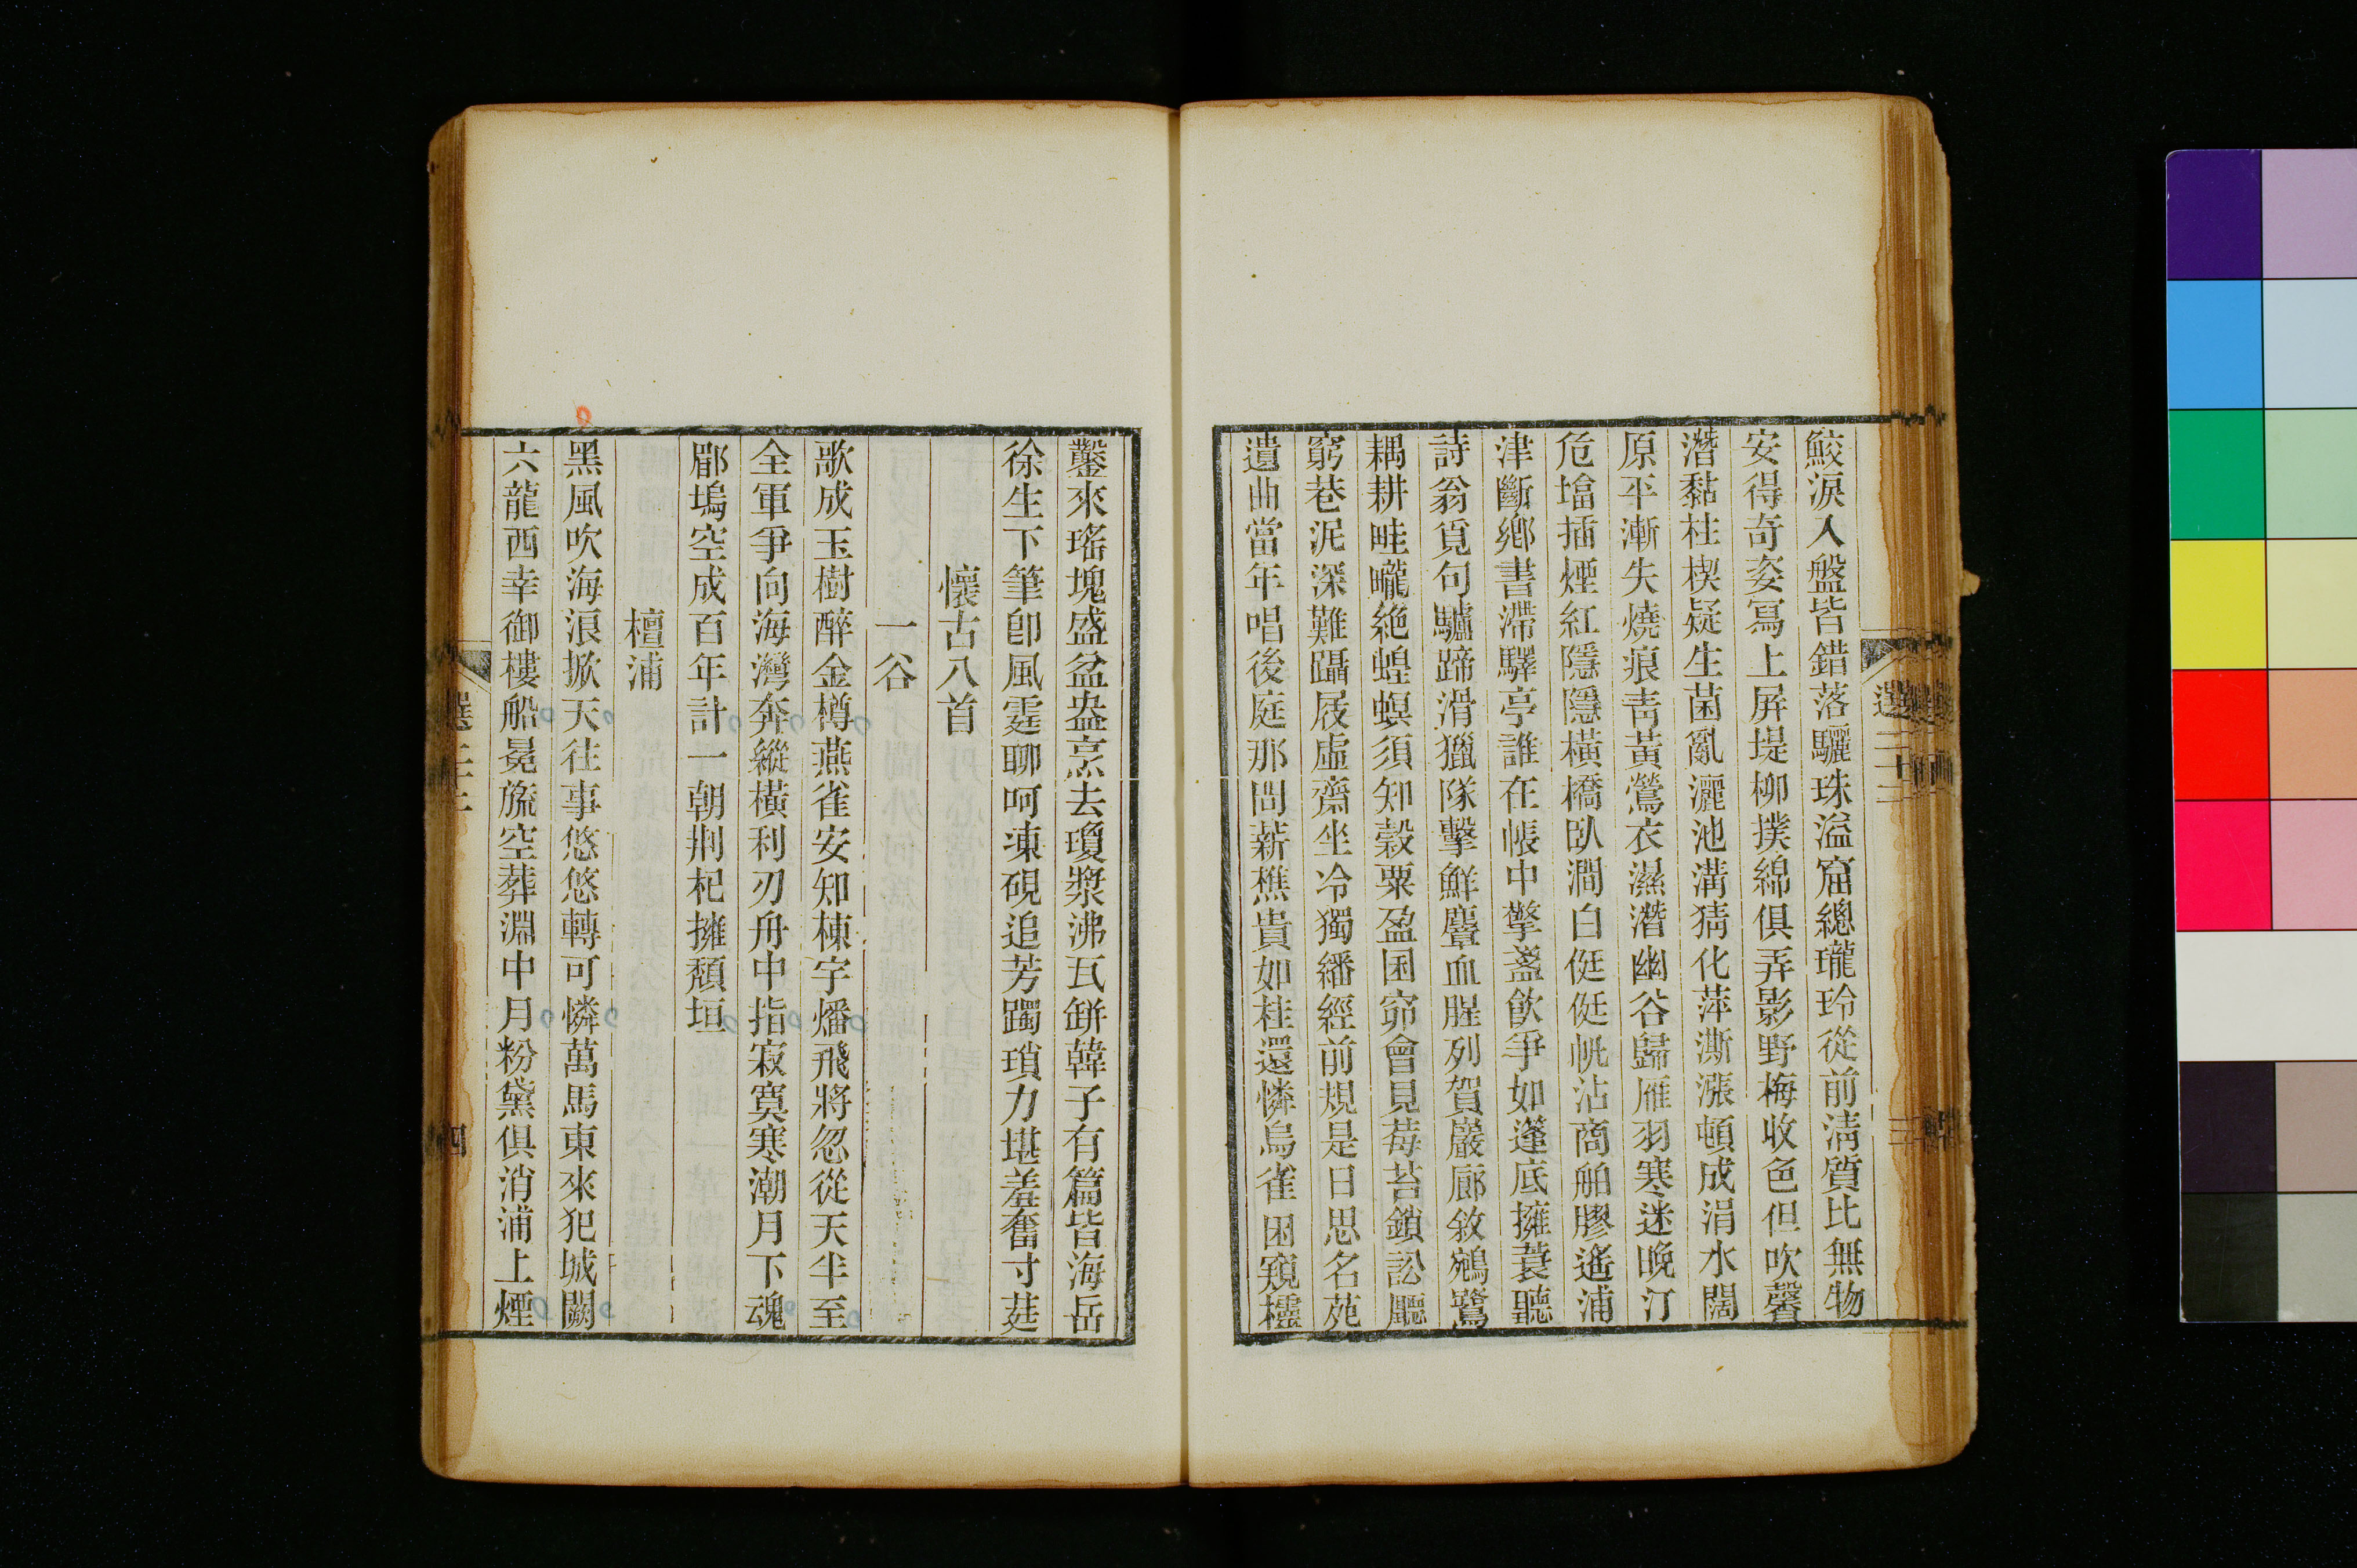 鮫淚入盤皆錯落驪珠溢窟總瓏玲從前淸質比無物
安得奇姿寫上屏堤柳撲綿俱弄影野梅收色但吹馨
潛黏柱楔疑生菌亂灑池溝猜化萍澌漲頓成涓水闊
原平漸失燒痕靑黃鶯衣濕潛幽谷歸雁羽寒迷晚汀
危墖插煙紅隱隱橫橋臥澗白侹侹帆沾商舶膠遙浦
津斷鄉書滯驛亭誰在帳中擎盞飮爭如篷底擁蓑聽
詩翁覓句驢蹄滑獵隊擊鮮麞血腥列賀巖廊敘鵷鷺
耦耕畦曨絶蝗螟須知穀粟盈囷窌會見莓苔鎖訟廳
窮巷泥深難躡屐虛齋坐冷獨繙經前規是日思名苑
遺曲當年唱後庭那問薪樵貴如桂還憐烏雀困窺欞
選二十二
鑿來瑤塊盛盆盎烹去瓊漿沸瓦缾韓子有篇皆海岳
徐生下筆卽風霆聊呵凍硯追芳躅瑣力堪羞奮寸莛
懷古八首
一谷
歌成玉樹醉金樽燕雀安知棟宇燔飛將忽從天半至
全軍爭向海灣奔縱橫利刃舟中指寂寞寒潮月下魂
郿塢空成百年計一朝荆杞擁頹垣
檀浦
黑風吹海浪掀天往事悠悠轉可憐萬馬東來犯城闕
六龍西幸御樓船冕旒空葬淵中月粉黛俱消浦上煙
四